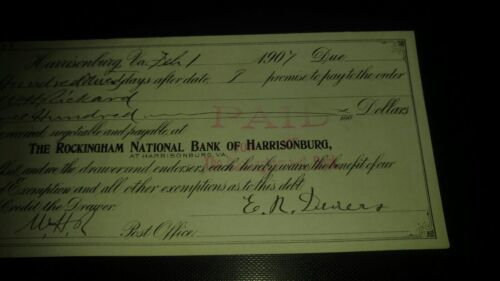 Harrisonburg, Va. Feb 1 1907 Due
Hundred days after date, I promise to pay to the order
Hundred 100 Dollars
PAID
negotiable and payable at
THE ROCKINGHAM NATIONAL BANK OF HARRISONBURG,
AT HARRISONBURG, VA.
and we the drawer and endorsers each hereby waive the benefit of our
Exemption and all other exemptions as to this debt
Credit the Drawer.
E. R.
Post Office